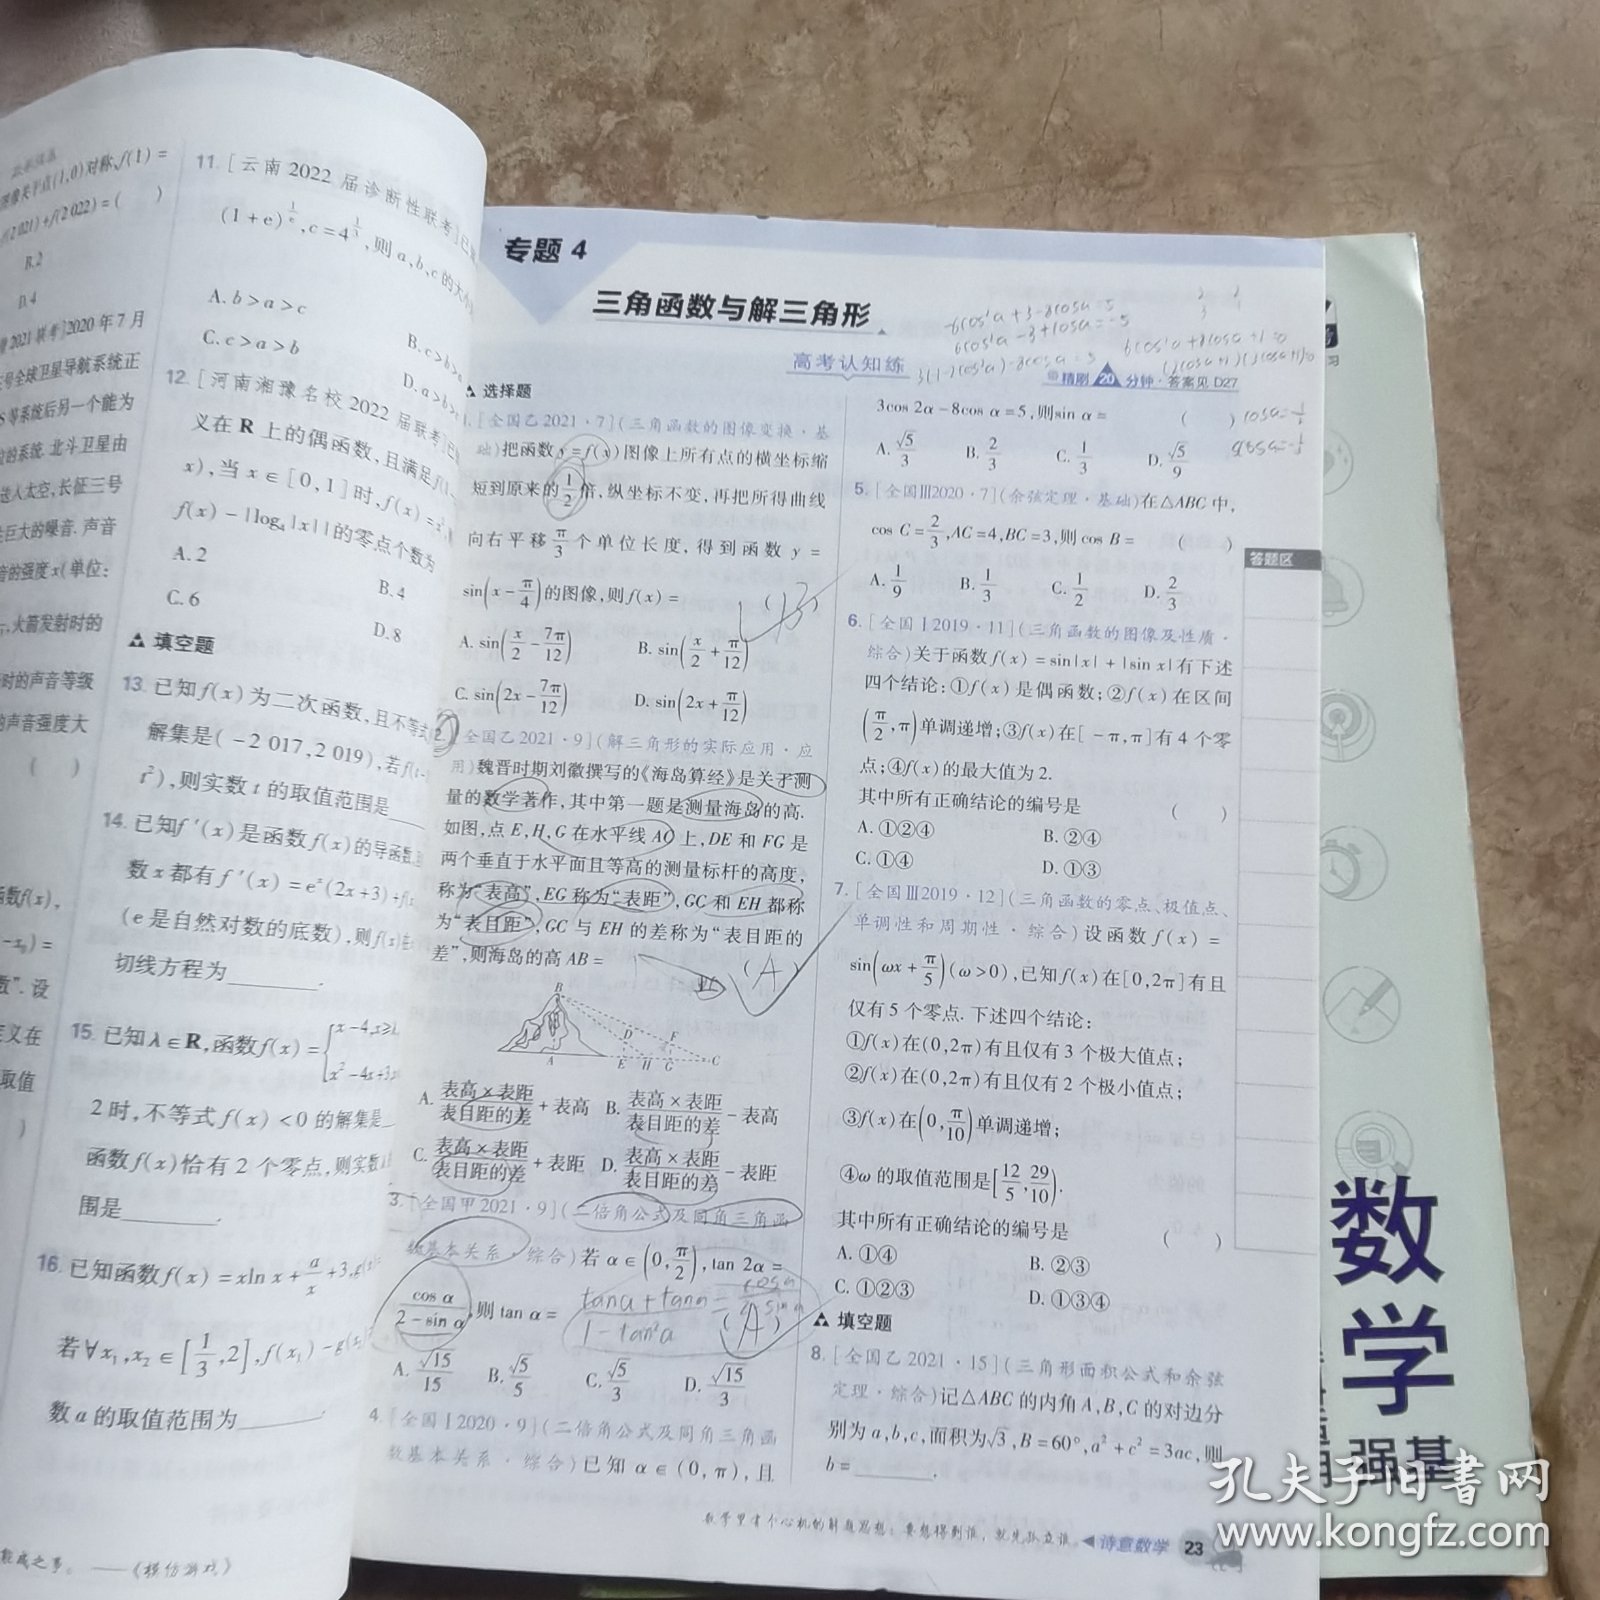 图像关于点(1,0)对称,f(1)=
f(2 021)+f(2 022)=(　)
B.2
D.4
2021联考]2020年7月
号全球卫星导航系统正
S等系统后另一个能为
的系统.北斗卫星由
送入太空,长征三号
巨大的噪音.声音
音的强度x(单位:
,火箭发射时的
时的声音等级
的声音强度大
(　)
11.[云南2022届诊断性联考]已
(1+e)^{1/e},c=4^{1/3},则a,b,c的大小
A.b>a>c
B.c>b>a
C.c>a>b
D.a>b>
12.[河南湘豫名校2022届联考]已
义在R上的偶函数,且满足f(1-
x),当x∈[0,1]时,f(x)=
f(x)-|log₄|x||的零点个数为
A.2
B.4
C.6
D.8
填空题
13.已知f(x)为二次函数,且不等式
解集是(-2 017,2 019),若f(t-
t²),则实数t的取值范围是
14.已知f'(x)是函数f(x)的导函数,
数x都有f'(x)=eˣ(2x+3)+f(
(e是自然对数的底数),则f(x)
切线方程为______.
15.已知λ∈R,函数f(x)={x-4,x≥λ
x²-4x+3,
2时,不等式f(x)<0的解集是
函数f(x)恰有2个零点,则实数λ
围是______.
16.已知函数f(x)=xln x+a/x+3,g(x)
若∀x₁,x₂∈[1/3,2],f(x₁)-g(x₂)
数a的取值范围为______.
——《模仿游戏》
专题4
三角函数与解三角形
高考认知练
精刷 20 分钟·答案见D27
选择题
1.[全国乙2021·7](三角函数的图像变换·基
础)把函数y=f(x)图像上所有点的横坐标缩
短到原来的1/2倍,纵坐标不变,再把所得曲线
向右平移π/3个单位长度,得到函数y=
sin(x-π/4)的图像,则f(x)= (B)
A.sin(x/2-7π/12) B.sin(x/2+π/12)
C.sin(2x-7π/12) D.sin(2x+π/12)
2.[全国乙2021·9](解三角形的实际应用·应
用)魏晋时期刘徽撰写的《海岛算经》是关于测
量的数学著作,其中第一题是测量海岛的高.
如图,点E,H,G在水平线AC上,DE和FG是
两个垂直于水平面且等高的测量标杆的高度,
称为“表高”,EG称为“表距”,GC和EH都称
为“表目距”,GC与EH的差称为“表目距的
差”,则海岛的高AB= (A)
B
D F
A E H G C
A.表高×表距/表目距的差+表高 B.表高×表距/表目距的差-表高
C.表高×表距/表目距的差+表距 D.表高×表距/表目距的差-表距
3.[全国甲2021·9](二倍角公式及同角三角函
数基本关系·综合)若α∈(0,π/2),tan 2α=
cos α/(2-sin α),则tan α= (A)
tana+tana/1-tan²a=cosa/2-sina
A.√15/15 B.√5/5 C.√5/3 D.√15/3
4.[全国Ⅰ2020·9](二倍角公式及同角三角函
数基本关系·综合)已知α∈(0,π),且
6cos²a-3+8cosa=-5
6cos²a+8cosa+1=0
3cos 2α-8cos α=5,则sin α= (　)
A.√5/3 B.2/3 C.1/3 D.√5/9
5.[全国Ⅲ2020·7](余弦定理·基础)在△ABC中,
cos C=2/3,AC=4,BC=3,则cos B= (　)
A.1/9 B.1/3 C.1/2 D.2/3
6.[全国Ⅰ2019·11](三角函数的图像及性质·
综合)关于函数f(x)=sin|x|+|sin x|有下述
四个结论:①f(x)是偶函数;②f(x)在区间
(π/2,π)单调递增;③f(x)在[-π,π]有4个零
点;④f(x)的最大值为2.
其中所有正确结论的编号是 (　)
A.①②④ B.②④
C.①④ D.①③
7.[全国Ⅲ2019·12](三角函数的零点、极值点、
单调性和周期性·综合)设函数f(x)=
sin(ωx+π/5)(ω>0),已知f(x)在[0,2π]有且
仅有5个零点.下述四个结论:
①f(x)在(0,2π)有且仅有3个极大值点;
②f(x)在(0,2π)有且仅有2个极小值点;
③f(x)在(0,π/10)单调递增;
④ω的取值范围是[12/5,29/10).
其中所有正确结论的编号是 (　)
A.①④ B.②③
C.①②③ D.①③④
填空题
8.[全国乙2021·15](三角形面积公式和余弦
定理·综合)记△ABC的内角A,B,C的对边分
别为a,b,c,面积为√3,B=60°,a²+c²=3ac,则
b=______.
答题区
数学里有个心机的解题思想:要想得到谁,就先孤立谁.
诗意数学 23
数学
强基
孔夫子旧书网
www.kongfz.com